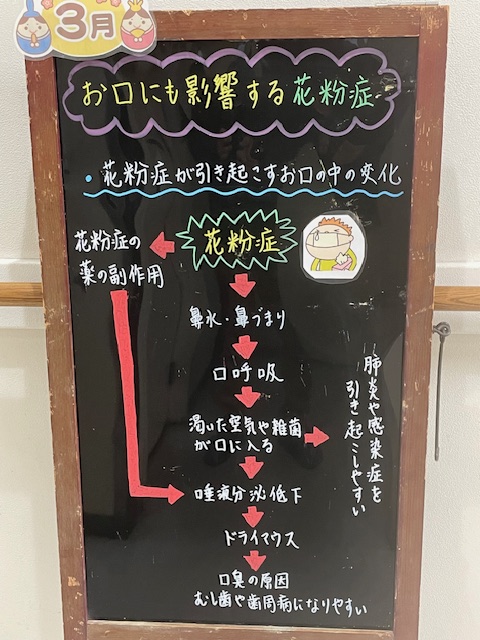 3月
お口にも影響する花粉症
・花粉症が引き起こすお口の中の変化
花粉症
花粉症の
薬の副作用
鼻水・鼻づまり
口呼吸
渇いた空気や雑菌
が口に入る
肺炎や感染症を
引き起こしやすい
唾液分泌低下
ドライマウス
口臭の原因
むし歯や歯周病になりやすい